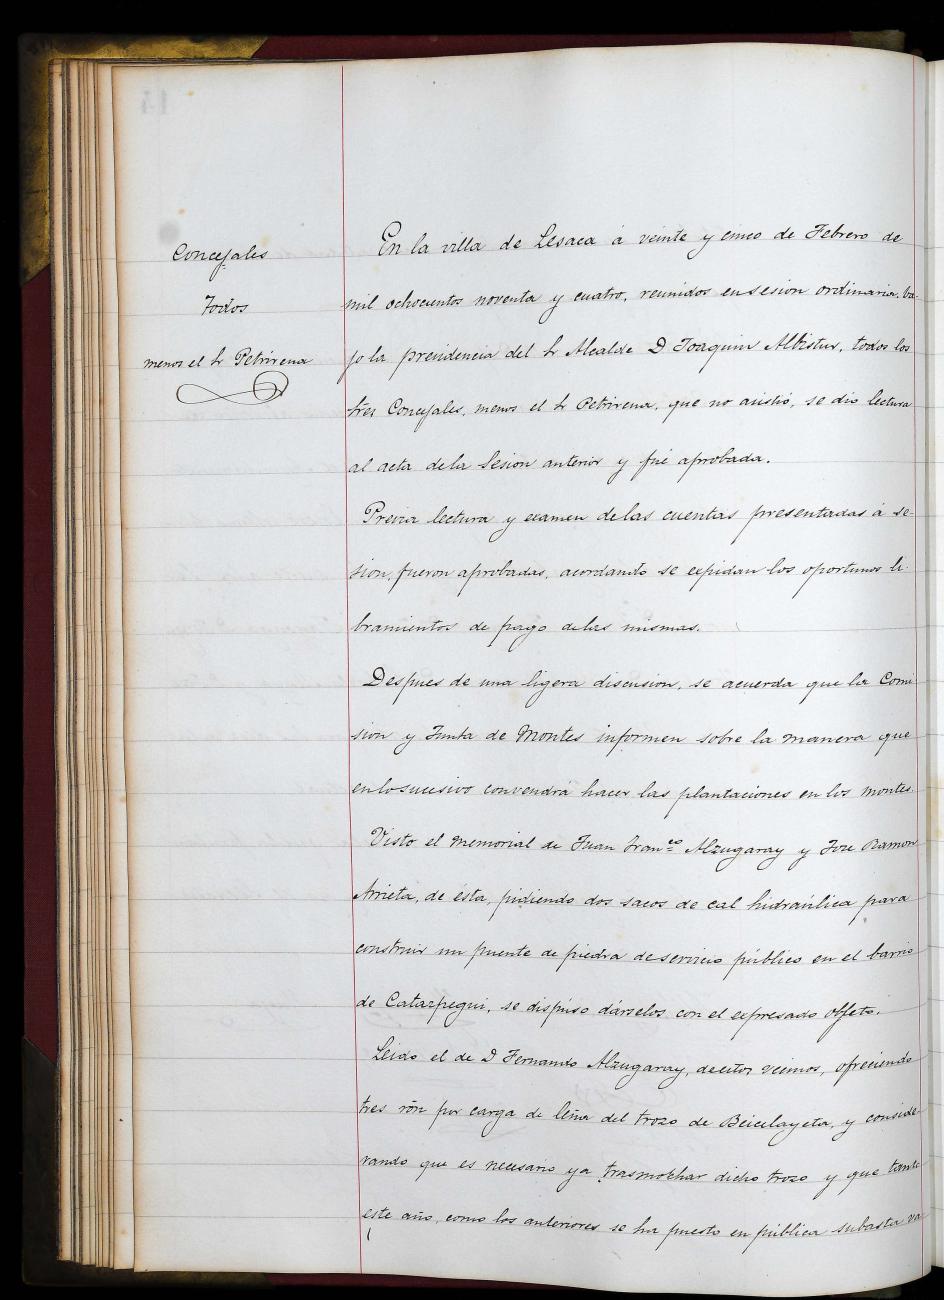 Concejales
Todos
menos el Sr Petrirena
En la villa de Lesaca á veinte y cinco de Febrero de
mil ochocientos noventa y cuatro, reunidos en sesion ordinaria, ba-
jo la presidencia del Sr Alcalde D Joaquin Albistur, todos los
Sres Concejales, menos el Sr Petrirena, que no asistió, se dió lectura
al acta de la Sesion anterior y fué aprobada.
Previa lectura y examen de las cuentas presentadas á se-
sion, fueron aprobadas, acordando se expidan los oportunos li-
bramientos de pago de las mismas.
Despues de una ligera discusion, se acuerda que la Comi
sion y Junta de Montes informen sobre la manera que
en lo sucesivo convendrá hacer las plantaciones en los montes.
Visto el memorial de Juan Franco Alzugaray y José Ramon
Arrieta, de ésta, pidiendo dos sacos de cal hidraúlica para
construir un puente de piedra de servicio público en el barrio
de Catazpegui, se dispúso dárselos con el expresado objeto.
Leido el de D Fernando Alzugaray, de estos vecinos, ofreciendo
tres rón por carga de leña del trozo de Beicelayeta, y conside-
rando que es necesario ya trasmochar dicho trozo y que tanto
este año, como los anteriores se ha puesto en pública subasta va